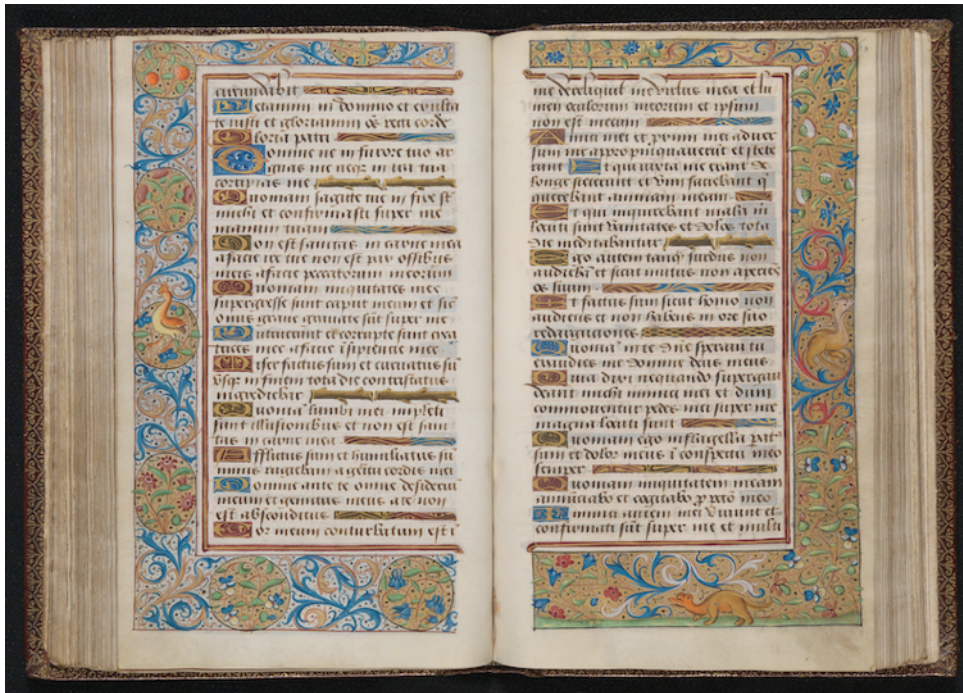 circundabit
Letamini in domino et exulta
te iusti et gloriamini om̄s recti corde
Gloria patri
Domine ne in furore tuo ar
guas me neqꝫ in ira tua
corripias me
Quoniam sagitte tue infixe sūt
michi et confirmasti super me
manum tuam
Non est sanitas in carne mea
a facie ire tue non est pax ossibus
meis a facie peccatorum meorum
Quoniam iniquitates mee
supergresse sunt caput meum et sic̄
onus grave gravate sūt super me
Putruerunt et corrupte sunt cica
trices mee a facie īsipientie mee
Miser factus sum et curvatus sū
usqꝫ in finem tota die contristatus
ingrediebar
Quoniā lumbi mei impleti
sunt illusionibus et non est sani
tas in carne mea
Afflictus sum et humiliatus sū
nimis rugiebam a gemitu cordis mei
Domine ante te omne desideriū
meum et gemitus meus a te non
est absconditus
Cor meum conturbatum est ī
me dereliquit me virtus mea et lu
men oculorum meorum et ipsum
non est mecum
Amici mei et proximi mei adver
sum me appropinquaverunt et stete
runt Et qui iuxta me erant de
longe steterunt et vim faciebant q̄
querebant animam meam
Et qui inquirebant mala m̄
locuti sunt vanitates et dolos tota
die meditabantur
Ego autem tanqꝫ surdus non
audiebā et sicut mutus non aperiēs
os suum
Et factus sum sicut homo non
audiens et non habens in ore suo
redargutiones
Quoniā in te dn̄e speravi tu
exaudies me domine deus meus
Quia dixi nequando supergau
deant michi inimici mei et dum
commoventur pedes mei super me
magna locuti sunt
Quoniam ego in flagella pat̄
sum et dolor meus ī conspectu meo
semper
Quoniam iniquitatem meam
annūciabo et cogitabo p̄ pctō meo
Inimici autem mei vivunt et
confirmati sūt super me et multi